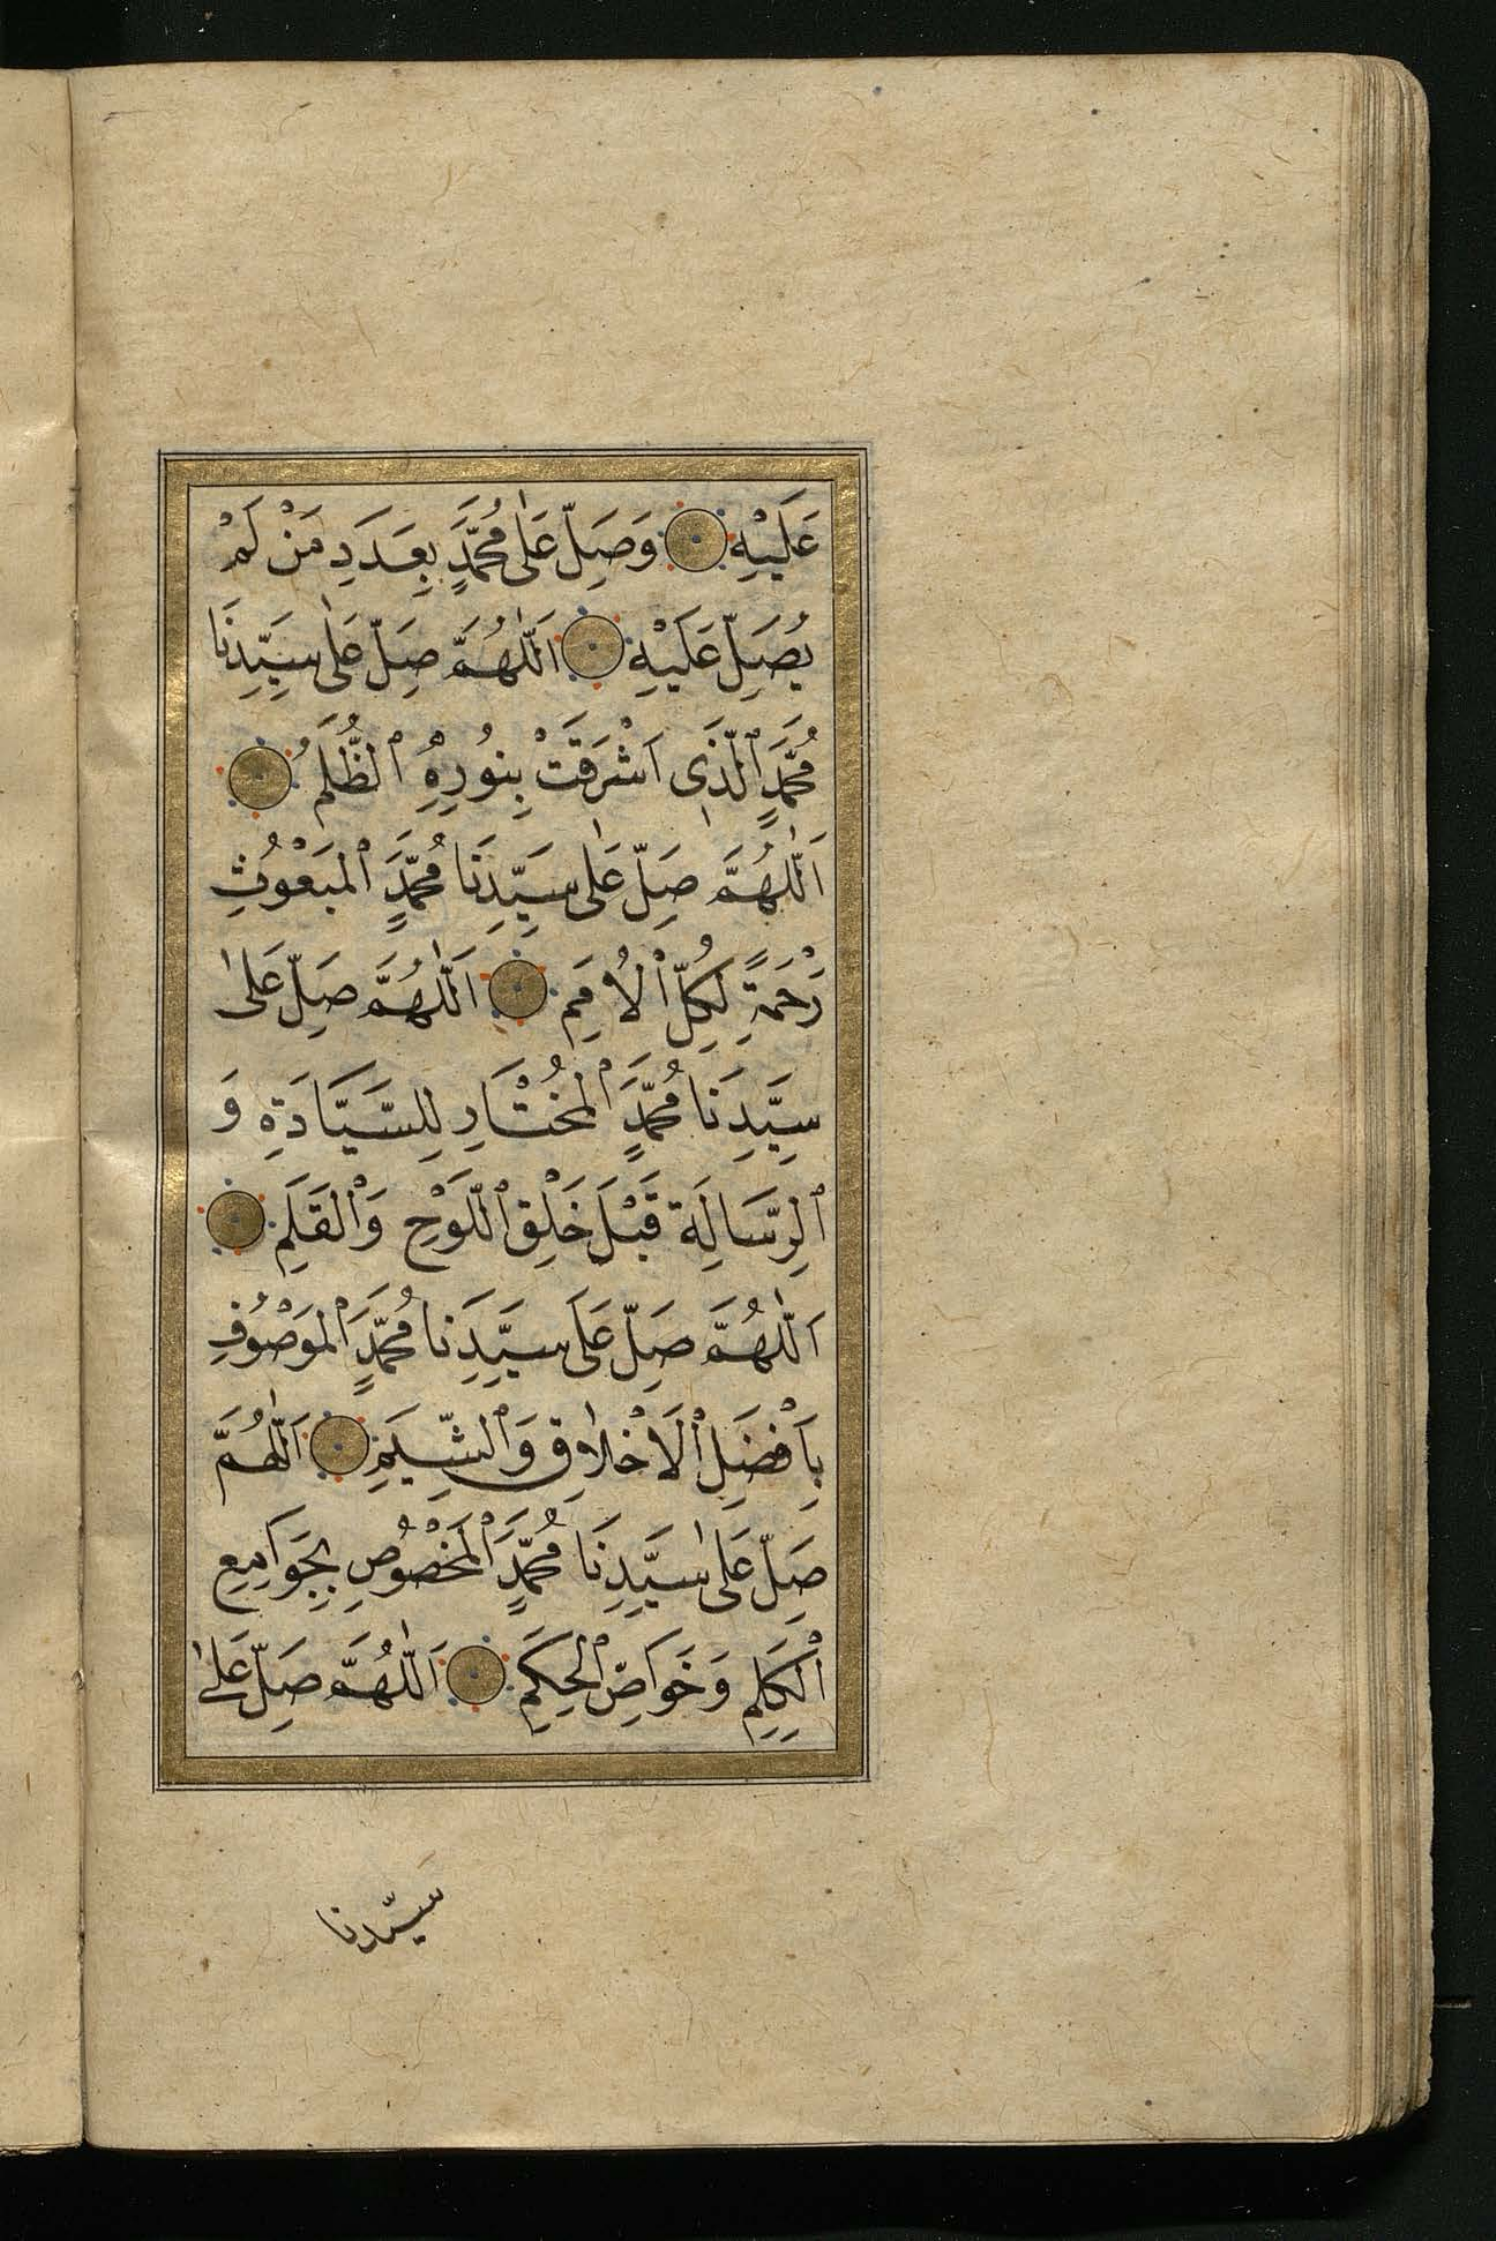 عَلَيْهِ وَصَلِّ عَلٰى مُحَمَّدٍ بِعَدَدِ مَنْ لَمْ
يُصَلِّ عَلَيْهِ اَللّٰهُمَّ صَلِّ عَلٰى سَيِّدِنَا
مُحَمَّدٍ ٱلَّذِى اَشْرَقَتْ بِنُورِهِ ٱلظُّلَمُ
اَللّٰهُمَّ صَلِّ عَلٰى سَيِّدِنَا مُحَمَّدٍ ٱلْمَبْعُوثِ
رَحْمَةً لِكُلِّ ٱلْاُمَمِ اَللّٰهُمَّ صَلِّ عَلٰى
سَيِّدِنَا مُحَمَّدٍ ٱلْمُخْتَارِ لِلسَّيَادَةِ وَ
ٱلرِّسَالَةِ قَبْلَ خَلْقِ ٱللَّوْحِ وَٱلْقَلَمِ
اَللّٰهُمَّ صَلِّ عَلَى سَيِّدِنَا مُحَمَّدٍ ٱلْمَوْصُوفِ
بِاَفْضَلِ ٱلْاَخْلَاقِ وَٱلشِّيَمِ اَللّٰهُمَّ
صَلِّ عَلٰى سَيِّدِنَا مُحَمَّدٍ ٱلْمَخْصُوصِ بِجَوَامِعِ
ٱلْكَلِمِ وَخَوَاصِّ ٱلْحِكَمِ اَللّٰهُمَّ صَلِّ عَلٰى
سَيّدنا